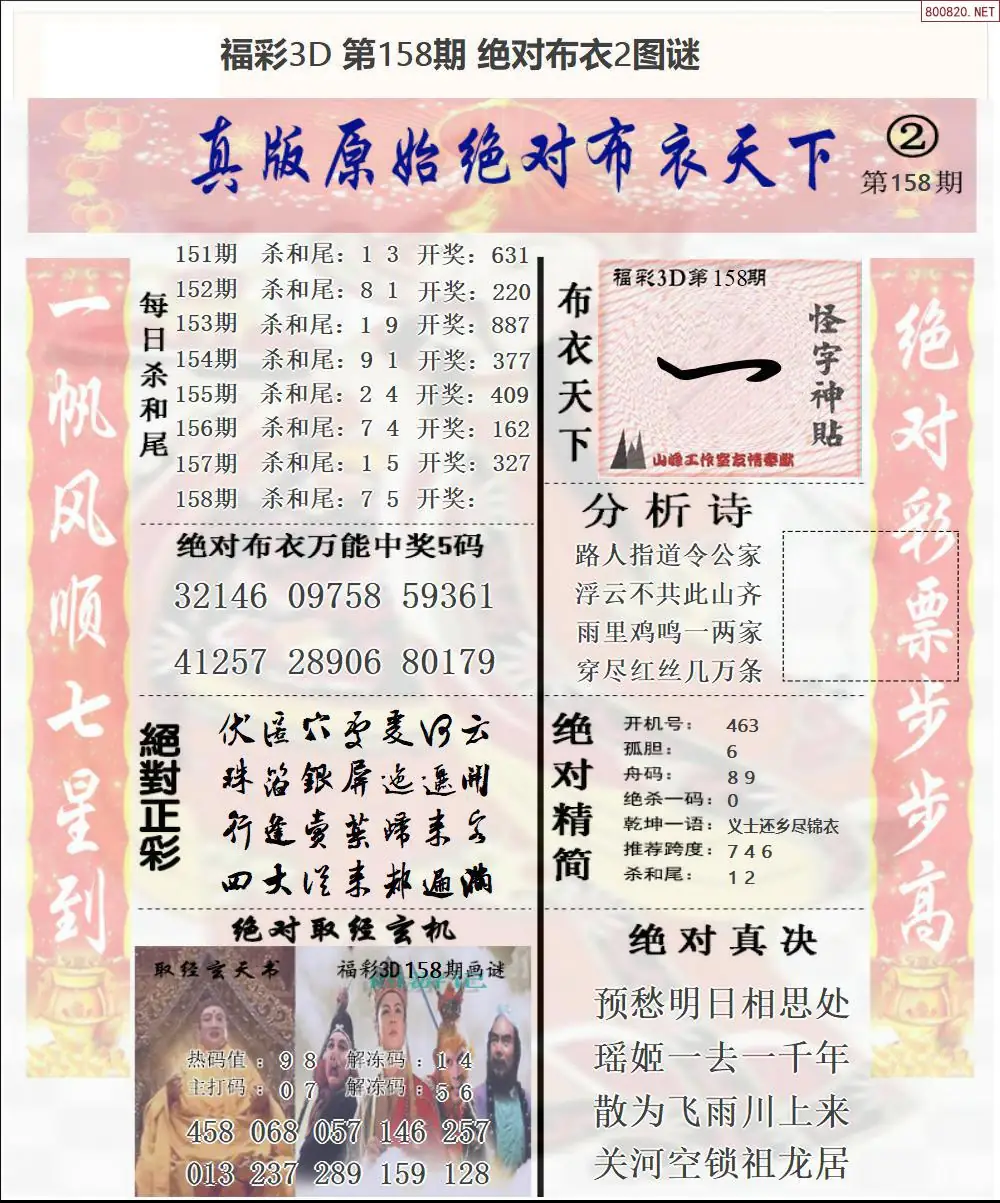 800820.NET
福彩3D 第158期 绝对布衣2图谜
真版原始绝对布衣天下
②
第158期
一帆风顺七星到
每日杀和尾
151期 杀和尾: 1 3 开奖: 631
152期 杀和尾: 8 1 开奖: 220
153期 杀和尾: 1 9 开奖: 887
154期 杀和尾: 9 1 开奖: 377
155期 杀和尾: 2 4 开奖: 409
156期 杀和尾: 7 4 开奖: 162
157期 杀和尾: 1 5 开奖: 327
158期 杀和尾: 7 5 开奖:
绝对布衣万能中奖5码
32146 09758 59361
41257 28906 80179
絕對正彩
珠箔銀屏迤邐開
四大
绝对取经玄机
取经玄天书
福彩3D158期画谜
热码值 : 9 8 解冻码 : 1 4
主打码 : 0 7 解冻码 : 5 6
458 068 057 146 257
013 237 289 159 128
布衣天下
福彩3D第158期
一
怪字神貼
山峰工作室友情奉献
分析诗
路人指道令公家
浮云不共此山齐
雨里鸡鸣一两家
穿尽红丝几万条
绝对精简
开机号: 463
孤胆: 6
舟码: 8 9
绝杀一码: 0
乾坤一语: 义士还乡尽锦衣
推荐跨度: 7 4 6
杀和尾: 1 2
绝对真决
预愁明日相思处
瑶姬一去一千年
散为飞雨川上来
关河空锁祖龙居
绝对彩票步步高